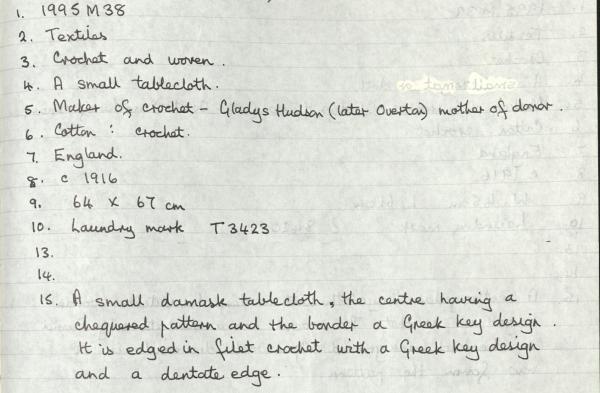 1. 1995 M 38
2. Textiles
3. Crochet and woven.
4. A small tablecloth.
5. Maker of crochet - Gladys Hudson (later Overton) mother of donor.
6. Cotton : crochet.
7. England.
8. c 1916
9. 64 x 67 cm
10. Laundry mark T3423
13.
14.
15. A small damask tablecloth, the centre having a
chequered pattern and the border a Greek key design.
It is edged in filet crochet with a Greek key design
and a dentate edge.